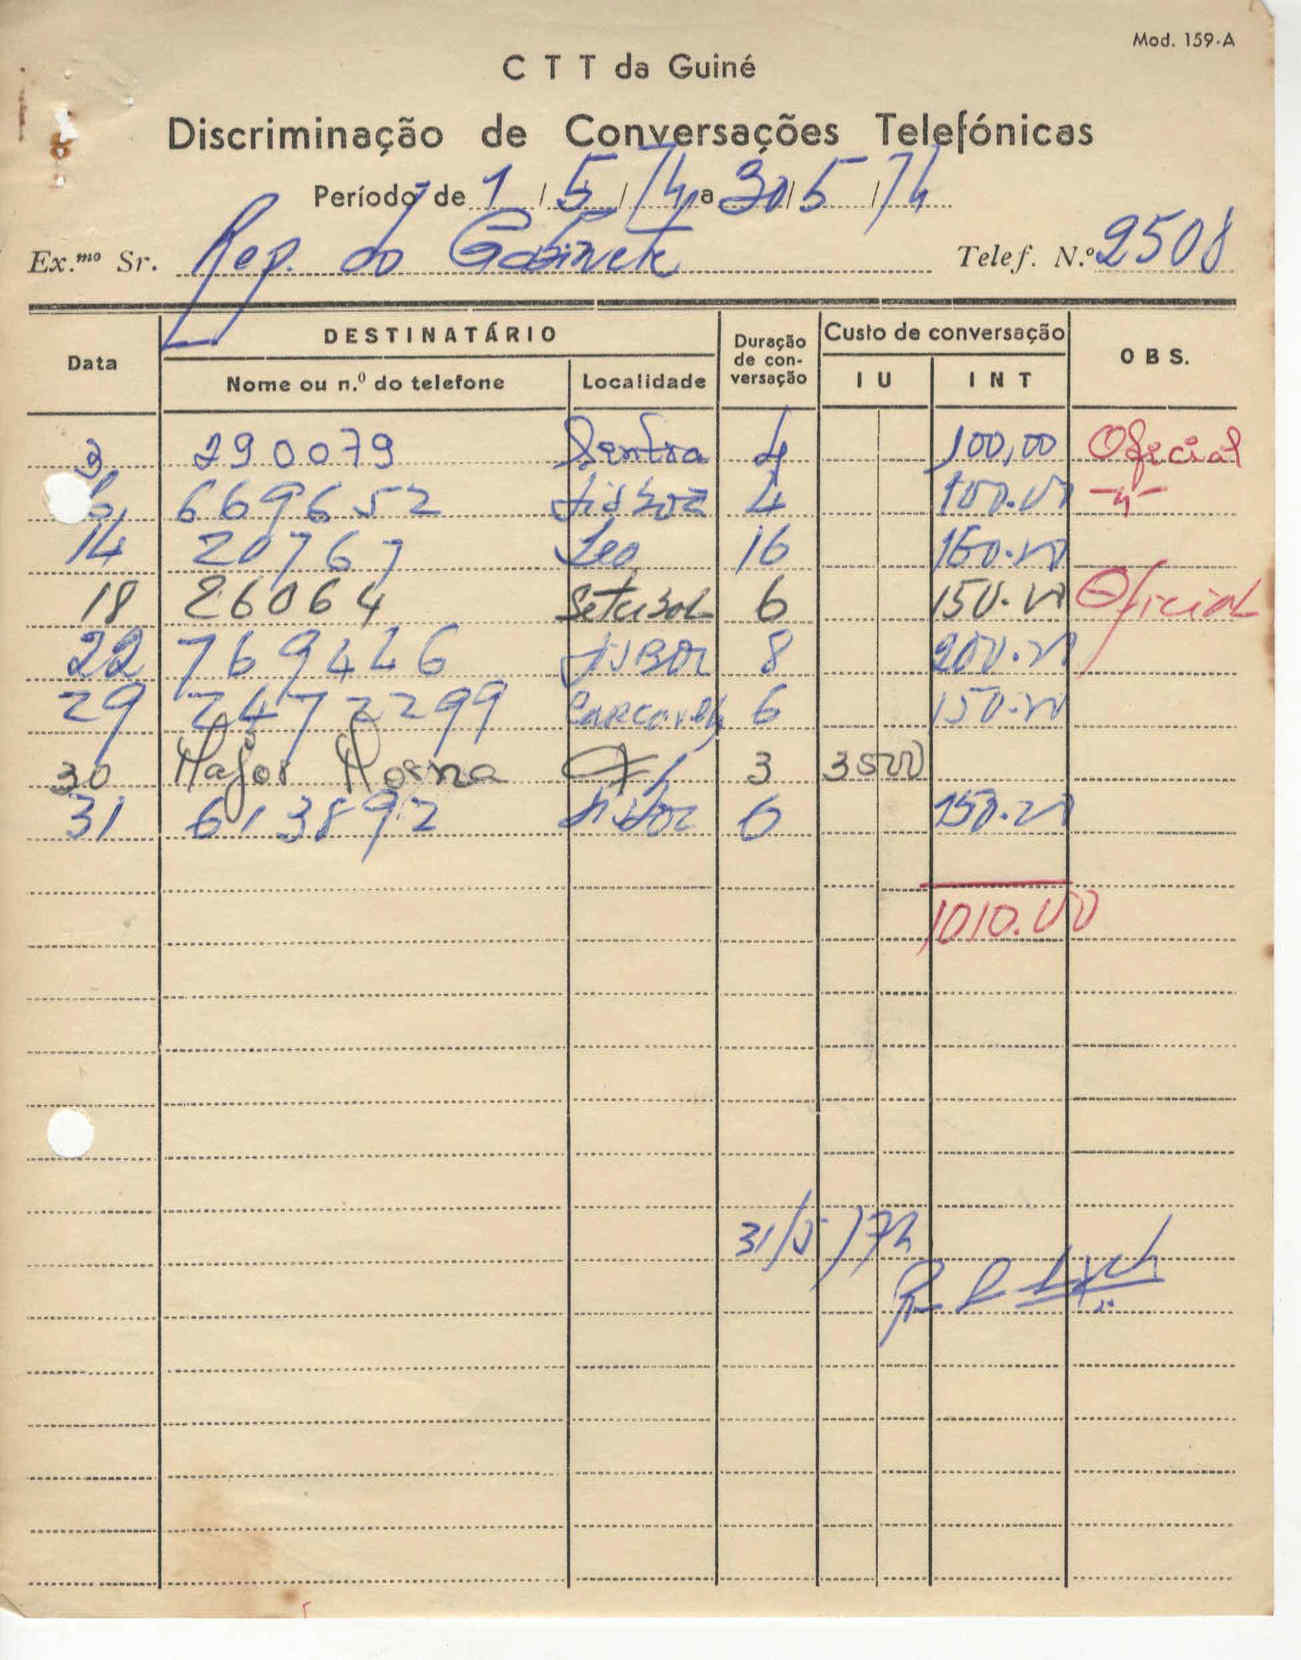 Mod. 159-A
C T T da Guiné
Discriminação de Conversações Telefónicas
Período de 1 / 5 / 74 a 30 / 5 / 74
Ex.mo Sr. Rep. do Gabinete Telef. N.º 2508
Data DESTINATÁRIO Duração de con-versação Custo de conversação OBS.
Nome ou n.º do telefone Localidade I U I N T
3 290079 4 100,00 Oficial
6, 669652 Lisboa 4 100.00 -"-
14 20767 16 160.00
18 26064 Setubal 6 150.00 Oficial
22 769446 Lisboa 8 200.00
29 2472299 6 150.00
30 Major 3 3500
31 613892 Lisboa 6 150.00
1010.00
31/5/74